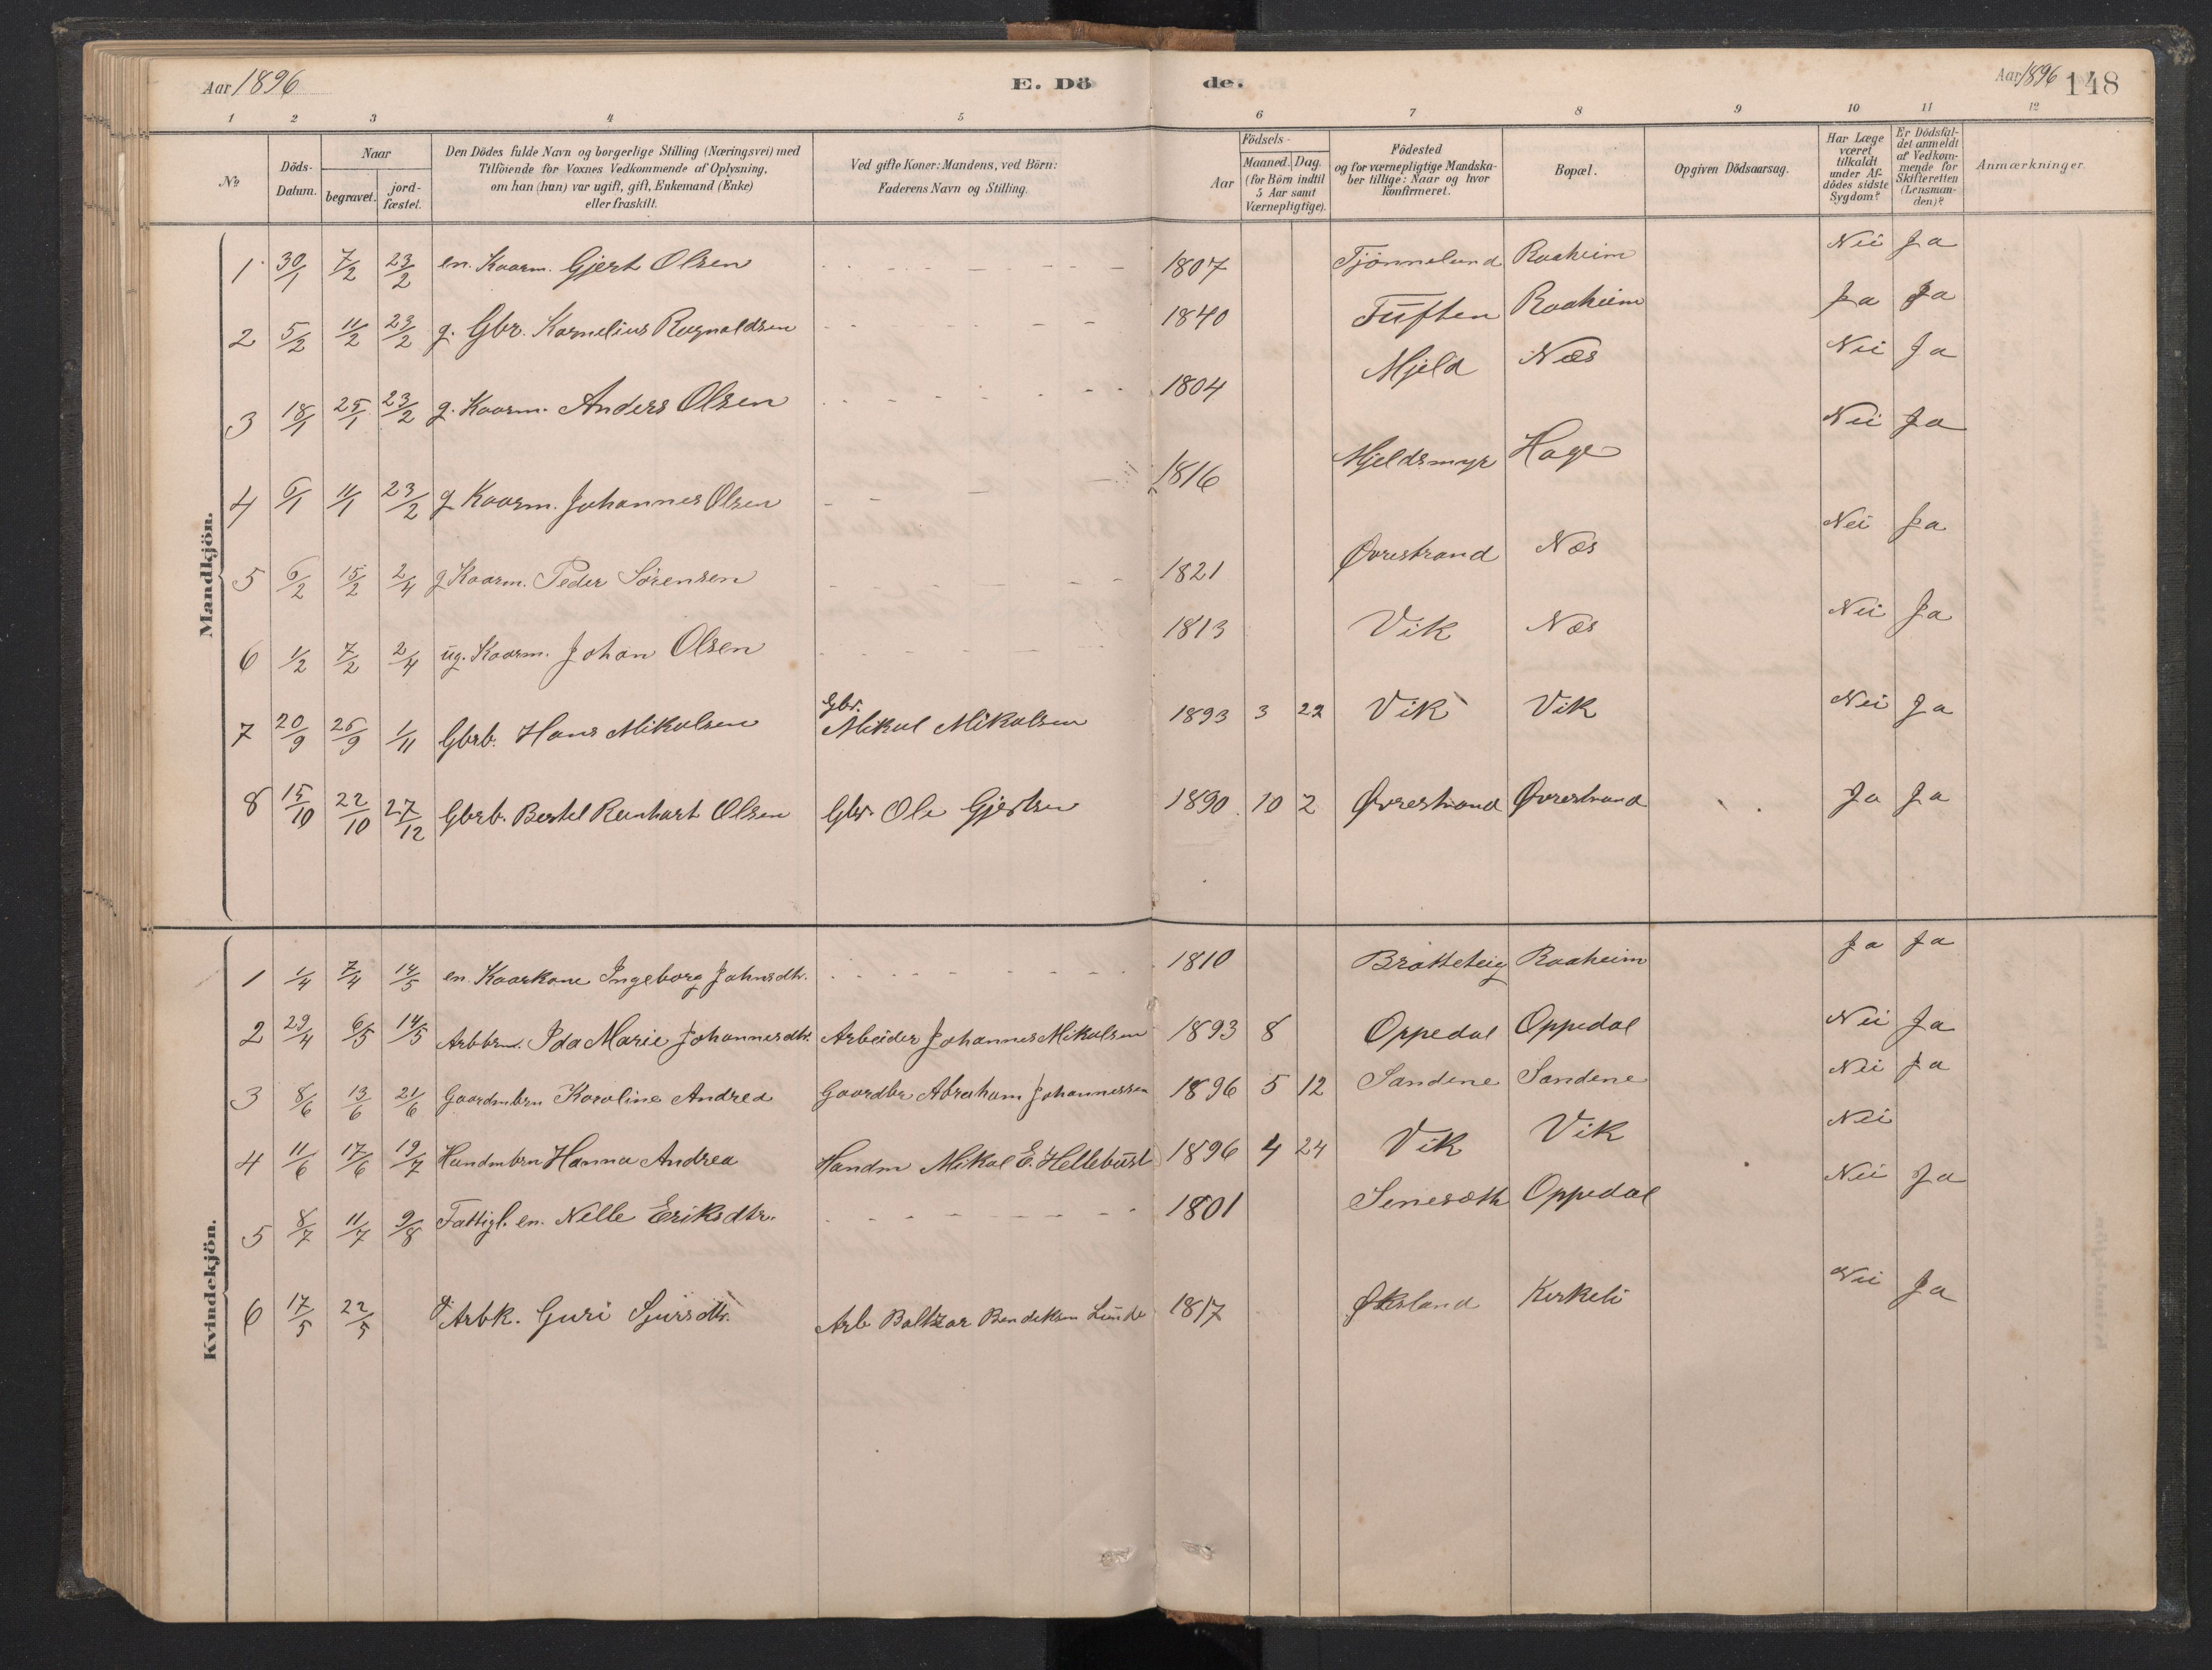 Aar 1896 E. Dö de. Aar 1896 148
1 2 3 4 5 6 7 8 9 10 11 12
No. Döds-Datum. Naar begravet. jord-fæstet. Den Dödes fulde Navn og borgerlige Stilling (Næringsvei) med Tilföiende for Voxnes Vedkommende af Oplysning, om han (hun) var ugift, gift, Enkemand (Enke) eller fraskilt. Ved gifte Koner: Mandens, ved Börn: Faderens Navn og Stilling. Födsels- Aar Maaned. Dag. (for Börn indtil 5 Aar samt Værnepligtige). Födested og for værnepligtige Mandskaber tillige: Naar og hvor Konfirmeret. Bopæl. Opgiven Dödsaarsag. Har Læge været tilkaldt under Afdödes sidste Sygdom? Er Dödsfaldet anmeldt af Vedkommende for Skifteretten (Lensmanden)? Anmærkninger.
Mandkjön.
1 30/1 7/2 23/2 en. Kaarm. Gjert Olsen 1807 Tjönneland Raaheim Nei Ja
2 5/2 11/2 23/2 g. Gbr. Kornelius Ragnaldsen 1840 Tuften Raaheim Ja Ja
3 18/1 25/1 23/2 g. Kaarm. Anders Olsen 1804 Mjeld Næs Nei Ja
4 6/1 11/1 23/2 g Kaarm. Johannes Olsen 1816 Mjeldsmyr Hage Nei Ja
5 6/2 15/2 2/4 g Kaarm. Peder Sörensen 1821 Øvrestrand Næs Nei Ja
6 1/2 7/2 2/4 ug. Kaarm. Johan Olsen 1813 Vik Næs Nei Ja
7 20/9 26/9 1/11 Gbrb. Hans Mikalsen Gbr. Mikal Mikalsen 1893 3 22 Vik Vik Nei Ja
8 15/10 22/10 27/12 Gbrb. Bertel Reinhart Olsen Gbr. Ole Gjertsen 1890 10 2 Øvrestrand Øvrestrand Ja Ja
Kvindekjön.
1 1/4 7/4 14/5 en. Kaarkone Ingeborg Johnsdtr. 1810 Bratteteig Raaheim Ja Ja
2 29/4 6/5 14/5 Arbbrn. Ida Marie Johannesdtr. Arbeider Johannes Mikalsen 1893 8 Oppedal Oppedal Nei Ja
3 8/6 13/6 21/6 Gaardmbrn Karoline Andrea Gaardbr Abraham Johannessen 1896 5 12 Sandene Sandene Nei Ja
4 11/6 17/6 19/7 Handmbrn Hanna Andrea Handm Mikal E. Hellebust 1896 4 24 Vik Vik Nei
5 8/7 11/7 9/8 Fattigl. en. Nelle Eriksdtr. 1801 Senesæth Oppedal Nei Ja
6 17/5 22/5 g Arbk. Guri Sjursdtr. Arb Baltzar Bendiksen Lunde 1817 Øksland Kirkeli Nei Ja